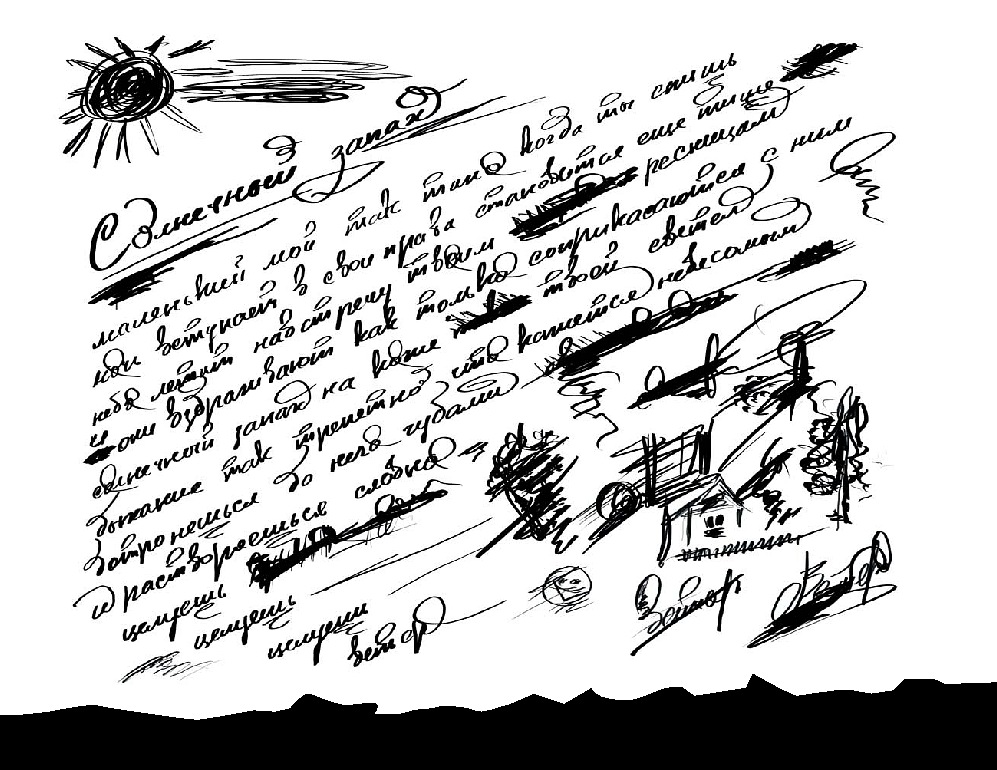 Солнечный запах
маленький мой так тихо когда ты спишь
вступает в свои права становится еще тише
небо летит навстречу твоим ресницам
и они вздрагивают как только соприкасаются с ним
солнечный запах на коже твоей светел
дыхание так трепетно что кажется невесомым
дотронешься до него губами
и растворяешься словно
целуешь
целуешь
целуешь
ветер
Ветер